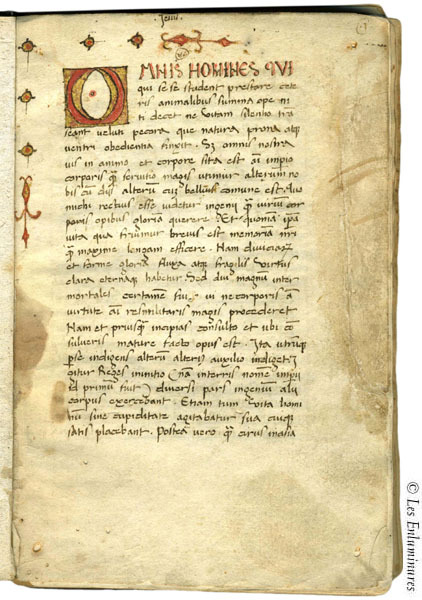 Jesus
OMNIS HOMINES QVI
qui se se student prestare cete
ris animalibus summa ope ni
ti decet ne vitam silentio trā
seant veluti pecora que natura prona atq
ventri obedientia finxit. Sz omnis nostra
vis in animo et corpore sita est aī impio
corporis q̄ servitio magis utimur alterum no
bis cū diis alterum cuz belluis comune est. Quo
michi rectius esse videtur ingenij q̄ viriūm cor
poris opibus gloriā querere. Et quoniam ipā
vita qua fruimur brevis est memoriā nrī
q̄ maxime longam efficere. Nam divitiarz
et forme gloriā fluxa atq fragilis virtus
clara eternaq habetur. Sed diu magnū inter
mortales certamen fuit vi ne corporis ā
virtute aī res militaris magis procederet
Nam et priusq̄ incipias consulto et ubi cō
sulveris mature facto opus est. Ita utrūq
p se indigens alterū alteriz auxilio indiget. I
Gitur Reges initio (nā in terris nomē impij
id primū fuit) diversi pars ingeniūm alij
corpus exercebant. Etiam tum vita homi
nūm sine cupiditate agitabatur sua cuiq
satis placebant. Postea vero q̄ cirus in asia
© Les Enluminures